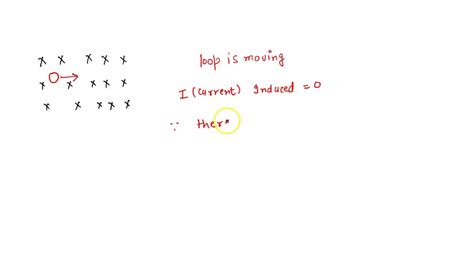 x x x x x
x O → x x x x
x x x x x
loop is moving
I (current) Induced = 0
∵ there